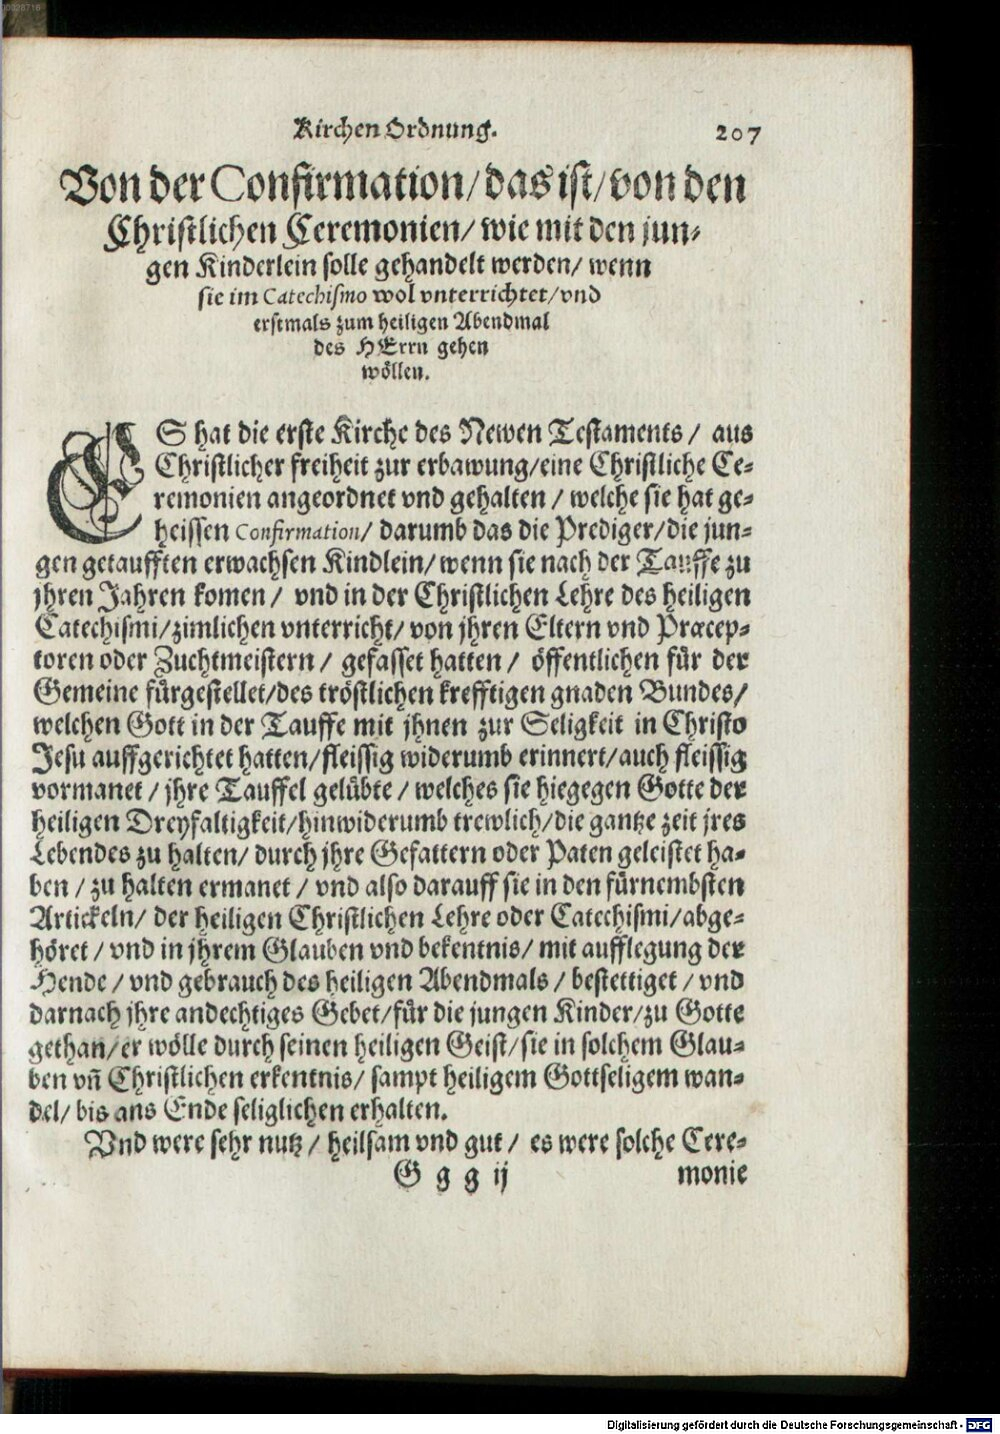 00028716
Kirchen Ordnung. 207
Von der Confirmation/das ist/von den
Christlichen Ceremonien/ wie mit den jun⸗
gen Kinderlein solle gehandelt werden/ wenn
sie im Catechismo wol vnterrichtet/vnd
erstmals zum heiligen Abendmal
des HErrn gehen
wöllen.
ES hat die erste Kirche des Newen Testaments / aus
Christlicher freiheit zur erbawung/eine Christliche Ce⸗
remonien angeordnet vnd gehalten / welche sie hat ge⸗
heissen Confirmation/ darumb das die Prediger/die jun⸗
gen getaufften erwachsen Kindlein/ wenn sie nach der Tauffe zu
jhren Jahren komen / vnd in der Christlichen Lehre des heiligen
Catechismi/zimlichen vnterricht/ von jhren Eltern vnd Præcep⸗
toren oder Zuchtmeistern / gefasset hatten / öffentlichen für der
Gemeine fürgestellet/des tröstlichen krefftigen gnaden Bundes/
welchen Gott in der Tauffe mit jhnen zur Seligkeit in Christo
Jesu auffgerichtet hatten/fleissig widerumb erinnert/auch fleissig
vormanet / jhre Tauffel gelübte / welches sie hiegegen Gotte der
heiligen Dreyfaltigkeit/hinwiderumb trewlich/die gantze zeit jres
Lebendes zu halten/ durch jhre Gefattern oder Paten geleistet ha⸗
ben / zu halten ermanet / vnd also darauff sie in den fürnembsten
Artickeln/ der heiligen Christlichen Lehre oder Catechismi/abge⸗
höret / vnd in jhrem Glauben vnd bekentnis/ mit aufflegung der
Hende / vnd gebrauch des heiligen Abendmals / bestettiget / vnd
darnach jhre andechtiges Gebet/für die jungen Kinder/zu Gotte
gethan/er wölle durch seinen heiligen Geist/sie in solchem Glau⸗
ben vñ Christlichen erkentnis/ sampt heiligem Gottseligem wan⸗
del/ bis ans Ende seliglichen erhalten.
Vnd were sehr nutz / heilsam vnd gut / es were solche Cere⸗
G g g ij monie
Digitalisierung gefördert durch die Deutsche Forschungsgemeinschaft - DFG